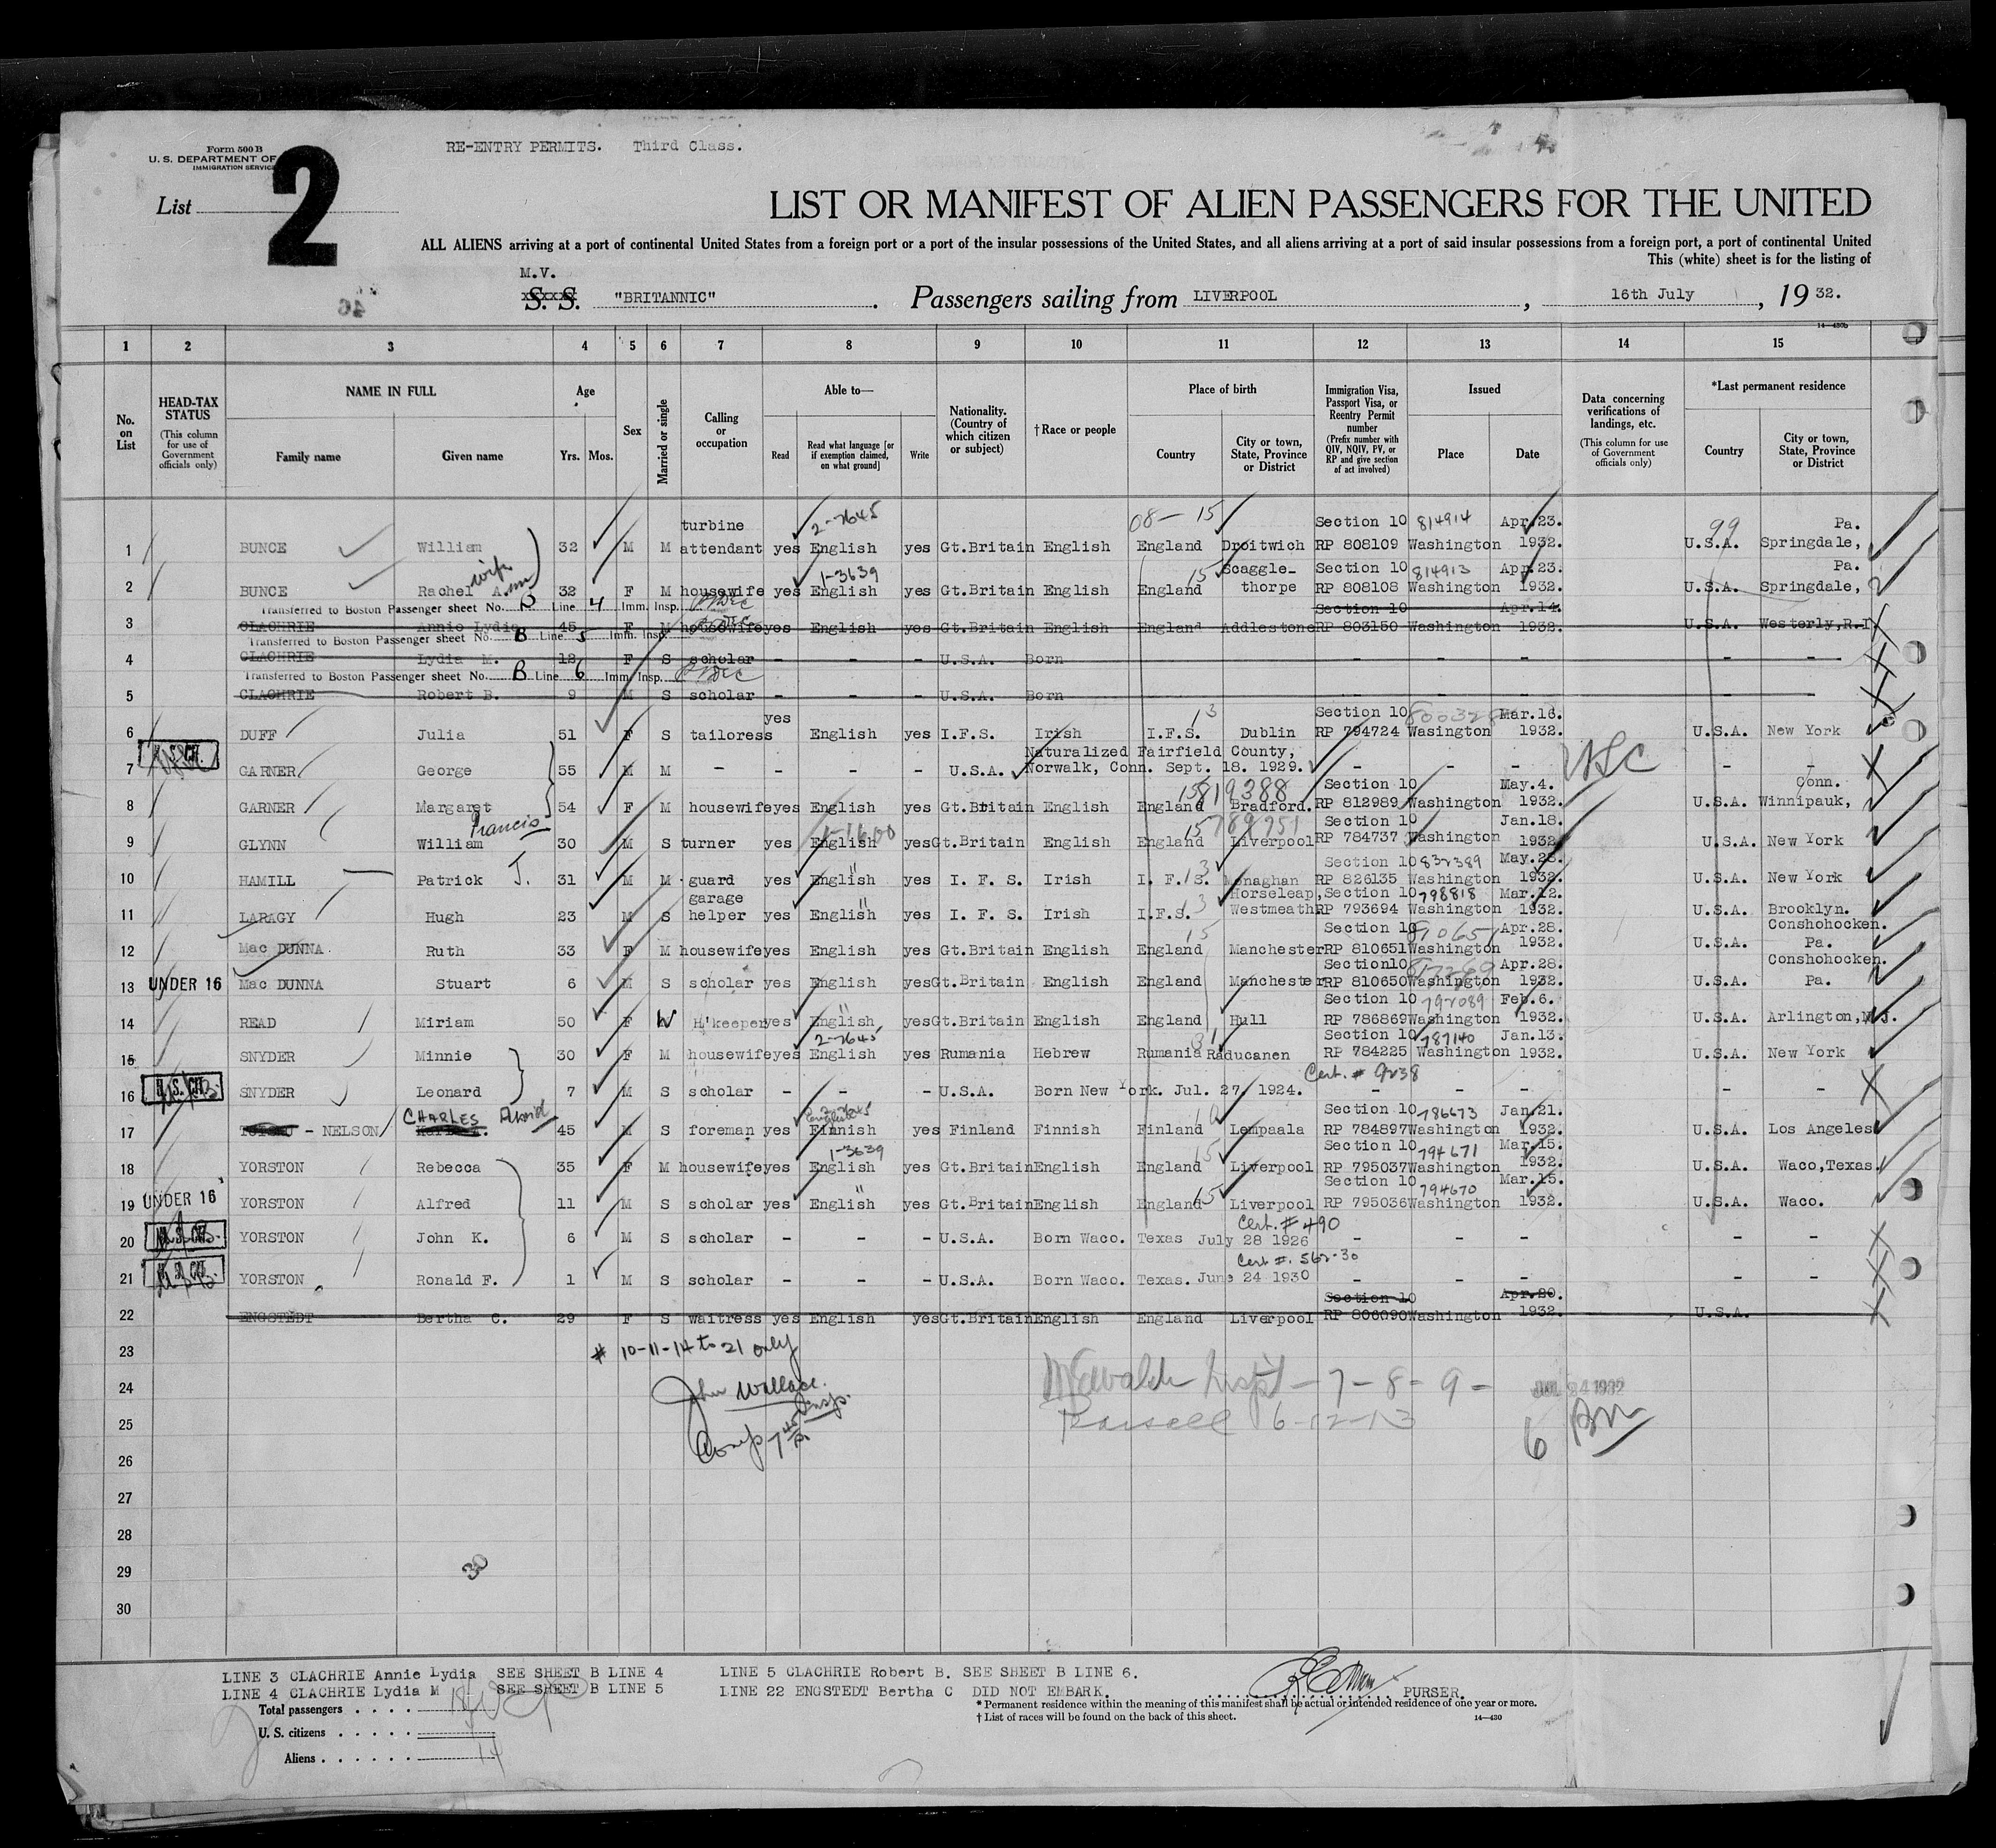 Form 500 B
U. S. DEPARTMENT OF
IMMIGRATION SERVICE
RE-ENTRY PERMITS. Third Class.
List 2
LIST OR MANIFEST OF ALIEN PASSENGERS FOR THE UNITED
ALL ALIENS arriving at a port of continental United States from a foreign port or a port of the insular possessions of the United States, and all aliens arriving at a port of said insular possessions from a foreign port, a port of continental United
This (white) sheet is for the listing of
M.V.
S. S. "BRITANNIC". Passengers sailing from LIVERPOOL, 16th July, 1932.
14—430b
1 2 3 4 5 6 7 8 9 10 11 12 13 14 15
No. on List
HEAD-TAX STATUS (This column for use of Government officials only)
NAME IN FULL Family name Given name
Age Yrs. Mos.
Sex
Married or single
Calling or occupation
Able to— Read Read what language [or if exemption claimed, on what ground] Write
Nationality. (Country of which citizen or subject)
†Race or people
Place of birth Country City or town, State, Province or District
Immigration Visa, Passport Visa, or Reentry Permit number (Prefix number with QIV, NQIV, PV, or RP and give section of act involved)
Issued Place Date
Data concerning verifications of landings, etc. (This column for use of Government officials only)
*Last permanent residence Country City or town, State, Province or District
turbine 2-7645 08—15 Section 10 814914 Apr.23. 99 Pa.
1 BUNCE William 32 M M attendant yes English yes Gt.Britain English England Droitwich RP 808109 Washington 1932. U.S.A. Springdale,
wife 1-3639 15 Scaggle- Section 10 814913 Apr.23. Pa.
2 BUNCE Rachel Ann 32 F M housewife yes English yes Gt.Britain English England thorpe RP 808108 Washington 1932. U.S.A. Springdale,
Transferred to Boston Passenger sheet No. B Line 4 Imm. Insp. Section 10 Apr.14.
3 CLACHRIE Annie Lydia 45 F M housewife yes English yes Gt.Britain English England Addlestone RP 803150 Washington 1932. U.S.A. Westerly,R.I.
Transferred to Boston Passenger sheet No. B Line 5 Imm. Insp.
4 CLACHRIE Lydia M. 12 F S scholar - - - U.S.A. Born - - - - -
Transferred to Boston Passenger sheet No. B Line 6 Imm. Insp.
5 CLACHRIE Robert B. 9 M S scholar - - - U.S.A. Born - - - - -
yes 13 Section 10 800328 Mar.16.
6 DUFF Julia 51 F S tailoress English yes I.F.S. Irish I.F.S. Dublin RP 794724 Wasington 1932. U.S.A. New York
U.S. CIT. Naturalized Fairfield County,
7 GARNER George 55 M M - - - - U.S.A. Norwalk, Conn. Sept. 18. 1929. - - - USC - -
15 819388 Section 10 May.4. Conn.
8 GARNER Margaret 54 F M housewife yes English yes Gt.Britain English England Bradford. RP 812989 Washington 1932. U.S.A. Winnipauk,
Francis 1-1600 15 789751 Section 10 Jan.18.
9 GLYNN William 30 M S turner yes English yes Gt.Britain English England Liverpool RP 784737 Washington 1932. U.S.A. New York
Section 10 832389 May.28.
10 HAMILL Patrick J. 31 M M guard yes English yes I. F. S. Irish I. F. S. 13 Monaghan RP 826135 Washington 1932. U.S.A. New York
garage " 13 Horseleap, Section 10 798818 Mar.12.
11 LARAGY Hugh 23 M S helper yes English yes I. F. S. Irish I.F.S. Westmeath RP 793694 Washington 1932. U.S.A. Brooklyn.
15 Section 10 Apr.28. Conshohocken.
12 Mac DUNNA Ruth 33 F M housewife yes English yes Gt.Britain English England Manchester RP 810651 Washington 1932. U.S.A. Pa.
Section10 817269 Apr.28. Conshohocken.
13 UNDER 16 Mac DUNNA Stuart 6 M S scholar yes English yes Gt.Britain English England Manchester RP 810650 Washington 1932. U.S.A. Pa.
Section 10 792089 Feb.6.
14 READ Miriam 50 F W H'keeper yes English yes Gt.Britain English England Hull RP 786869 Washington 1932. U.S.A. Arlington,N.J.
2-7645 31 Section 10 787140 Jan.13.
15 SNYDER Minnie 30 F M housewife yes English yes Rumania Hebrew Rumania Raducanen RP 784225 Washington 1932. U.S.A. New York
Cert. # 9238
16 U.S. CIT. SNYDER Leonard 7 M S scholar - - - U.S.A. Born New York. Jul. 27. 1924. - - - - -
CHARLES English Section 10 786673 Jan.21.
17 - NELSON 45 M S foreman yes Finnish yes Finland Finnish Finland Lempaala RP 784897 Washington 1932. U.S.A. Los Angeles
1-3639 15 Section 10 794671 Mar.15.
18 YORSTON Rebecca 35 F M housewife yes English yes Gt.Britain English England Liverpool RP 795037 Washington 1932. U.S.A. Waco,Texas.
" 15 Section 10 794670 Mar.15.
19 UNDER 16 YORSTON Alfred 11 M S scholar yes English yes Gt.Britain English England Liverpool RP 795036 Washington 1932. U.S.A. Waco.
Cert. # 490
20 U.S. CIT. YORSTON John K. 6 M S scholar - - - U.S.A. Born Waco. Texas July 28 1926 - - - - -
Cert #. 562-30
21 U.S. CIT. YORSTON Ronald F. 1 M S scholar - - - U.S.A. Born Waco. Texas. June 24 1930 - - - - -
Section 10 Apr.20.
22 ENGSTEDT Bertha C. 29 F S waitress yes English yes Gt.Britain English England Liverpool RP 806090 Washington 1932. U.S.A.
23 # 10-11-14 to 21 only
24 John Wallace. Insp. - 7 - 8 - 9 - JUL 24 1932
25 6-12-13 6
26
27
28
29 30
30
LINE 3 CLACHRIE Annie Lydia SEE SHEET B LINE 4 LINE 5 CLACHRIE Robert B. SEE SHEET B LINE 6.
LINE 4 CLACHRIE Lydia M SEE SHEET B LINE 5 LINE 22 ENGSTEDT Bertha C DID NOT EMBARK. PURSER.
Total passengers 18
U. S. citizens
Aliens 14
* Permanent residence within the meaning of this manifest shall be actual or intended residence of one year or more.
† List of races will be found on the back of this sheet. 14—430